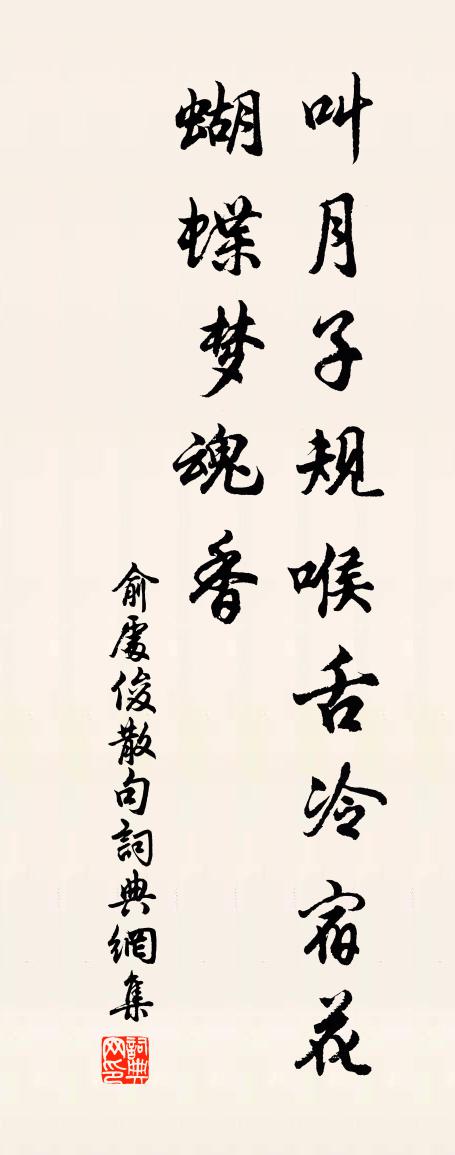 叫月子规喉舌冷宿花
蝴蝶梦魂香
俞處俊散句詞典網集
詞典网印